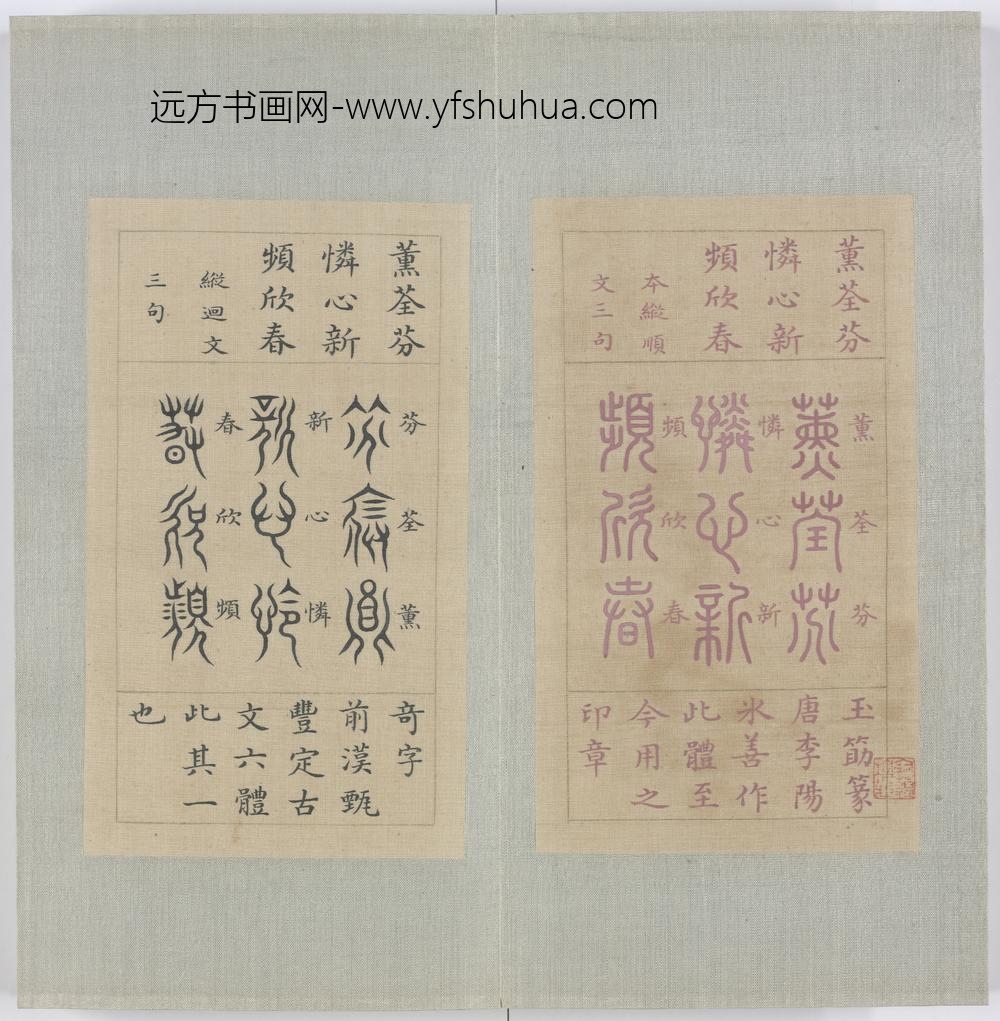 远方书画网-www.yfshuhua.com
薰荃芬
憐心新
頻欣春
本縱順
文三句
薰荃芬
憐心新
頻欣春
薰荃芬
憐心新
頻欣春
玉筯篆
唐李陽
氷善作
此體至
今用之
印章
薰荃芬
憐心新
頻欣春
縱迴文
三句
芬荃薰
新心憐
春欣頻
芬荃薰
新心憐
春欣頻
奇字
前漢甄
豐定古
文六體
此其一
也